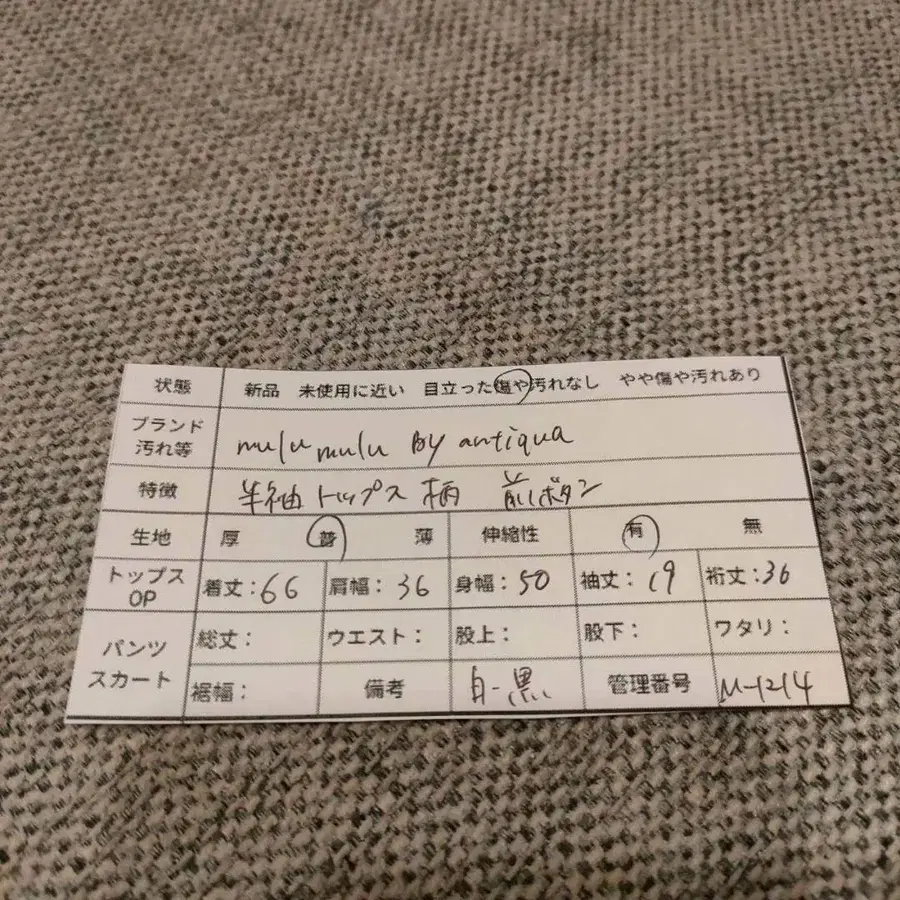 状態 新品 未使用に近い 目立った傷や汚れなし やや傷や汚れあり
ブランド
汚れ等 mulu mulu By antiqua
特徴 半袖 トップス 柄 前ボタン
生地 厚 普 薄 伸縮性 有 無
トップス
OP 着丈:66 肩幅:36 身幅:50 袖丈:19 裄丈:36
パンツ
スカート 総丈: ウエスト: 股上: 股下: ワタリ:
裾幅: 備考 白-黒 管理番号 M-1214